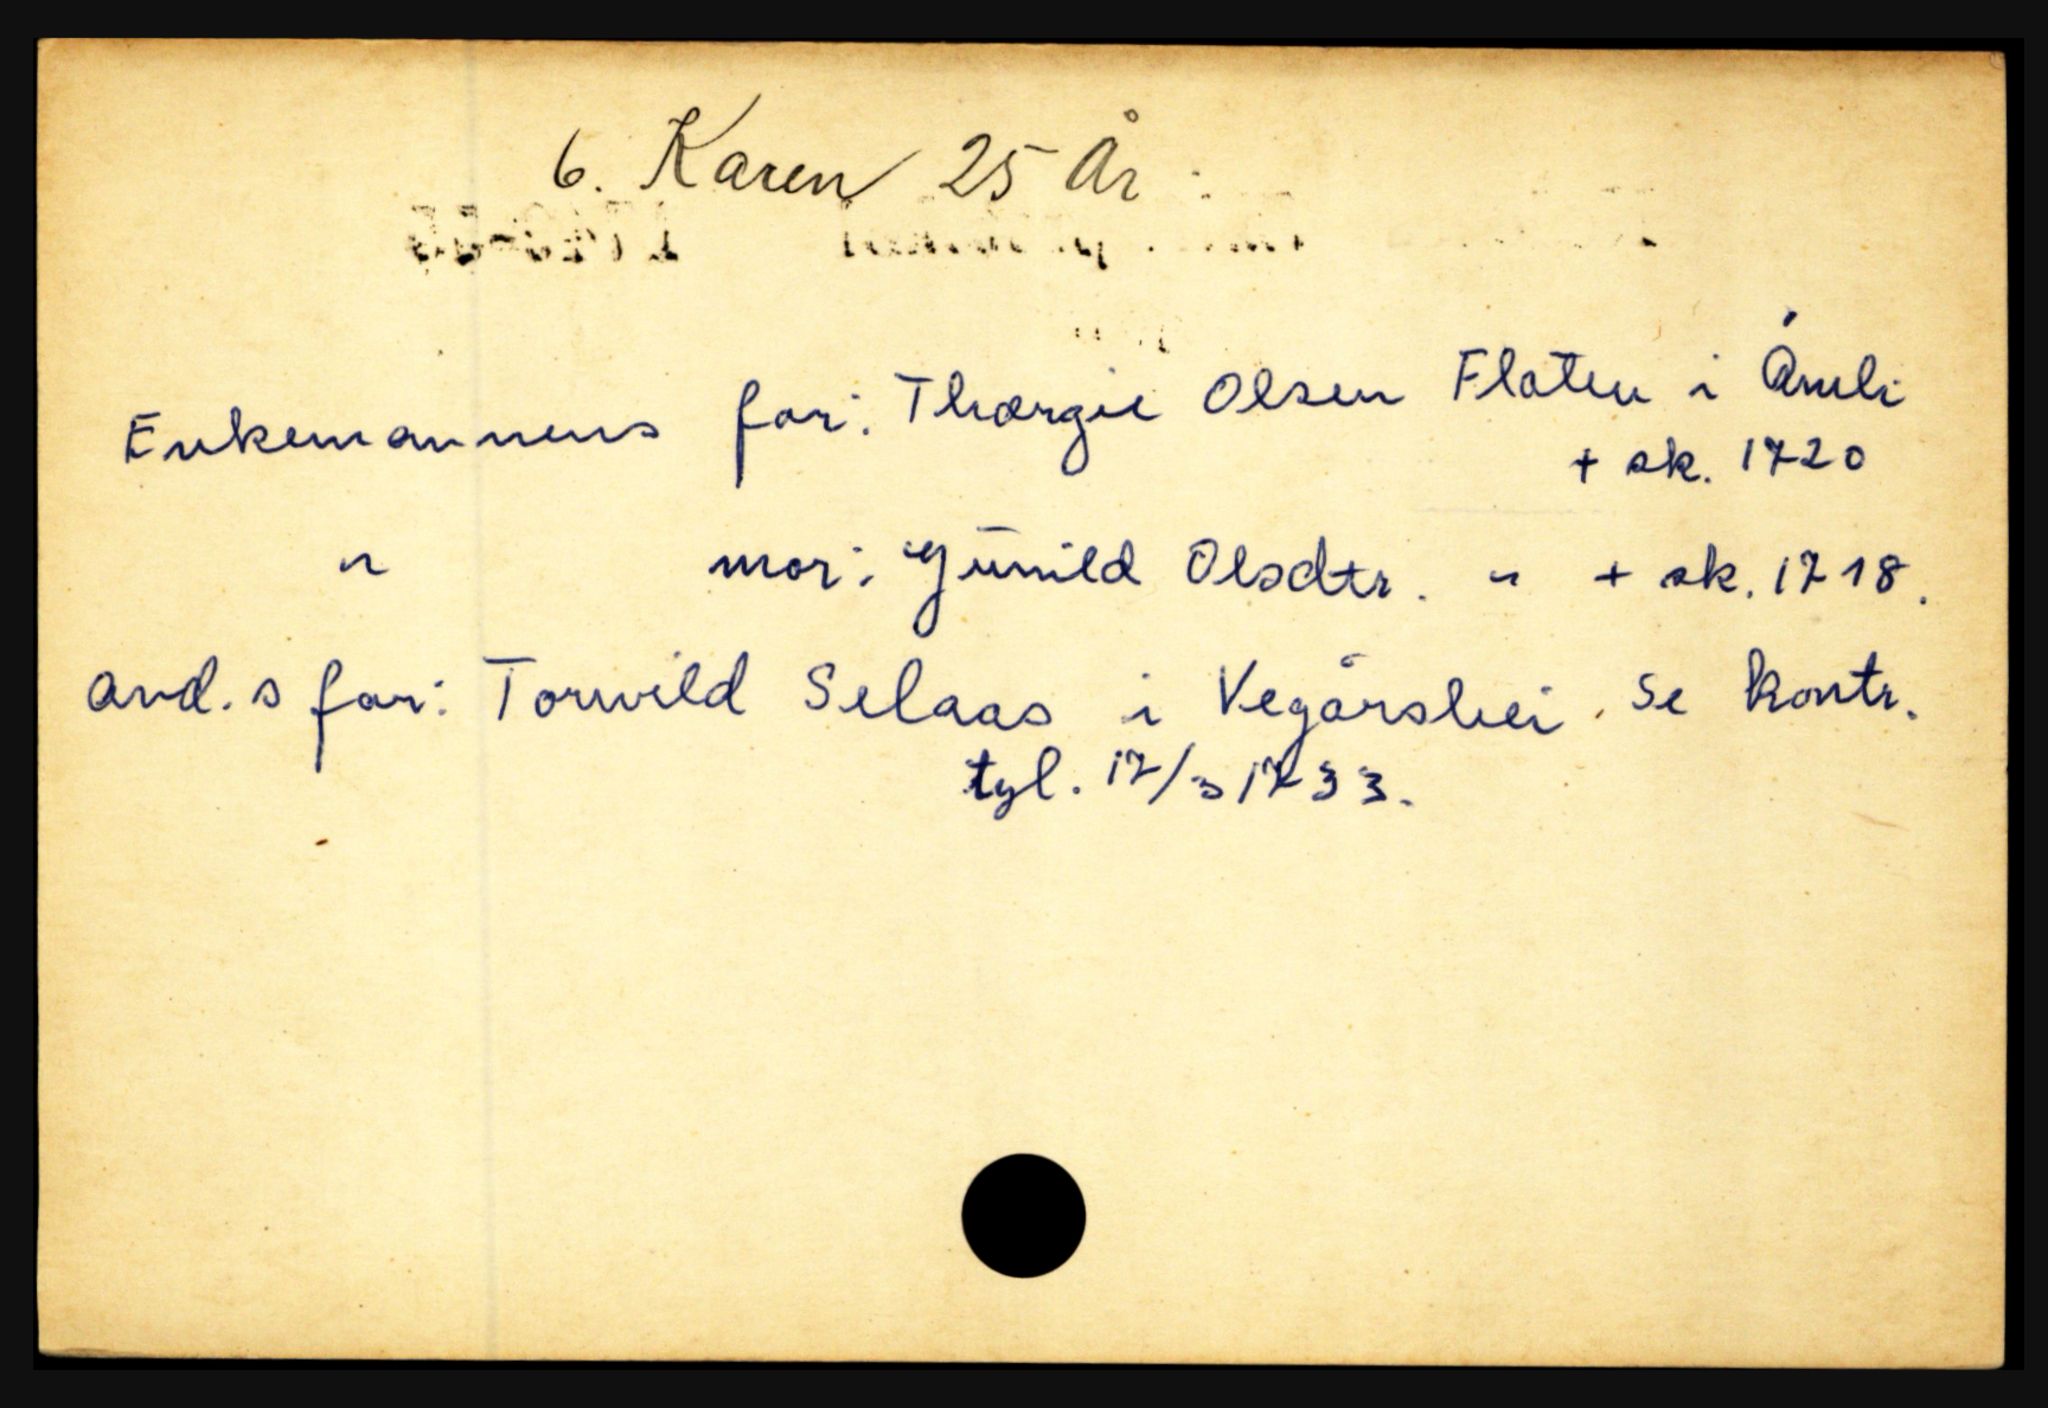 6. Karen 25 År
Enkemannens far: Thorgie Olsen Flaten i Åmli
+ sk. 1720
" mor: Gunild Olsdtr. " + sk. 1718.
avd. s far: Torvild Selaas i Vegårshei. Se kontr.
tgl. 17/3 1733.